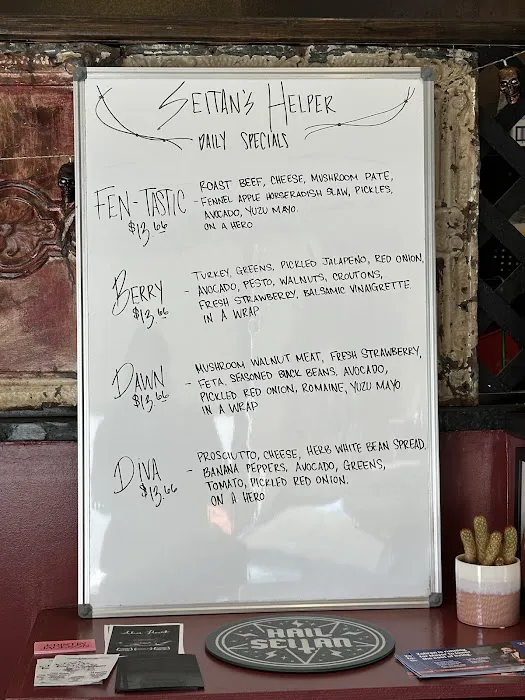 SEITAN'S HELPER
DAILY SPECIALS
FEN-TASTIC
$13.66
- ROAST BEEF, CHEESE, MUSHROOM PATE,
FENNEL APPLE HORSERADISH SLAW, PICKLES,
AVOCADO, YUZU MAYO.
ON A HERO
BERRY
$13.66
- TURKEY, GREENS, PICKLED JALAPEÑO, RED ONION,
AVOCADO, PESTO, WALNUTS, CROUTONS,
FRESH STRAWBERRY, BALSAMIC VINAIGRETTE
IN A WRAP
DAWN
$13.66
- MUSHROOM WALNUT MEAT, FRESH STRAWBERRY,
FETA, SEASONED BLACK BEANS, AVOCADO,
PICKLED RED ONION, ROMAINE, YUZU MAYO
IN A WRAP
DIVA
$13.66
- PROSCIUTTO, CHEESE, HERB WHITE BEAN SPREAD,
BANANA PEPPERS, AVOCADO, GREENS,
TOMATO, PICKLED RED ONION.
ON A HERO
HAIL
SEITAN